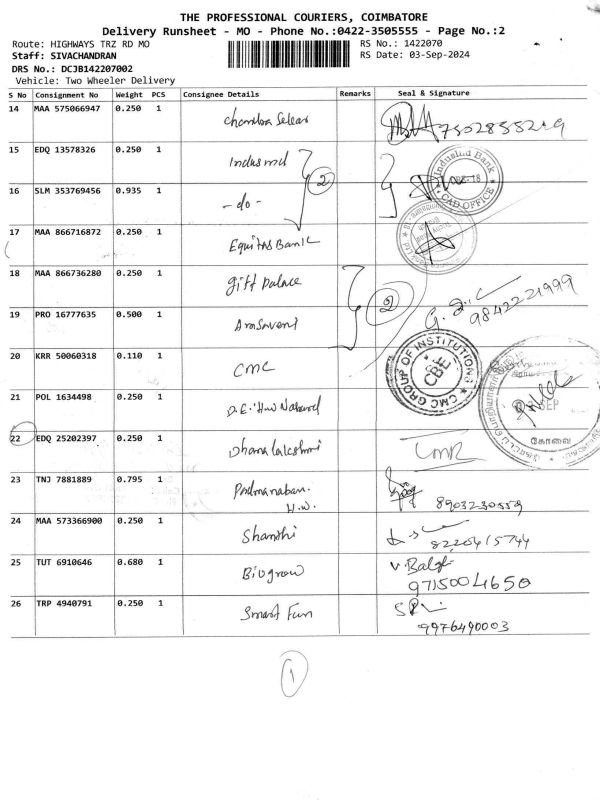 THE PROFESSIONAL COURIERS, COIMBATORE
Delivery Runsheet - MO - Phone No.:0422-3505555 - Page No.:2
Route: HIGHWAYS TRZ RD MO RS No.: 1422070
Staff: SIVACHANDRAN RS Date: 03-Sep-2024
DRS No.: DCJB142207002
Vehicle: Two Wheeler Delivery
S No Consignment No Weight PCS Consignee Details Remarks Seal & Signature
14 MAA 575066947 0.250 1
15 EDQ 13578326 0.250 1 Indusind
16 SLM 353769456 0.935 1 -do-
2
IndusInd Bank
CAD OFFICE
17 MAA 866716872 0.250 1 Equitas Bank
18 MAA 866736280 0.250 1 Gift Palace
2
9842221999
19 PRO 16777635 0.500 1
20 KRR 50060318 0.110 1 CMC
CMC GROUP OF INSTITUTIONS
CBE
21 POL 1634498 0.250 1
SEP
கோவை
22 EDQ 25202397 0.250 1 Dhanalakshmi
23 TNJ 7881889 0.795 1 Padmanaban.
H.W.
8903230559
24 MAA 573366900 0.250 1 Shanthi
8220415744
25 TUT 6910646 0.680 1 Biogrow
V. Balaji
9715004650
26 TRP 4940791 0.250 1 Smart Fun
9976490003
1